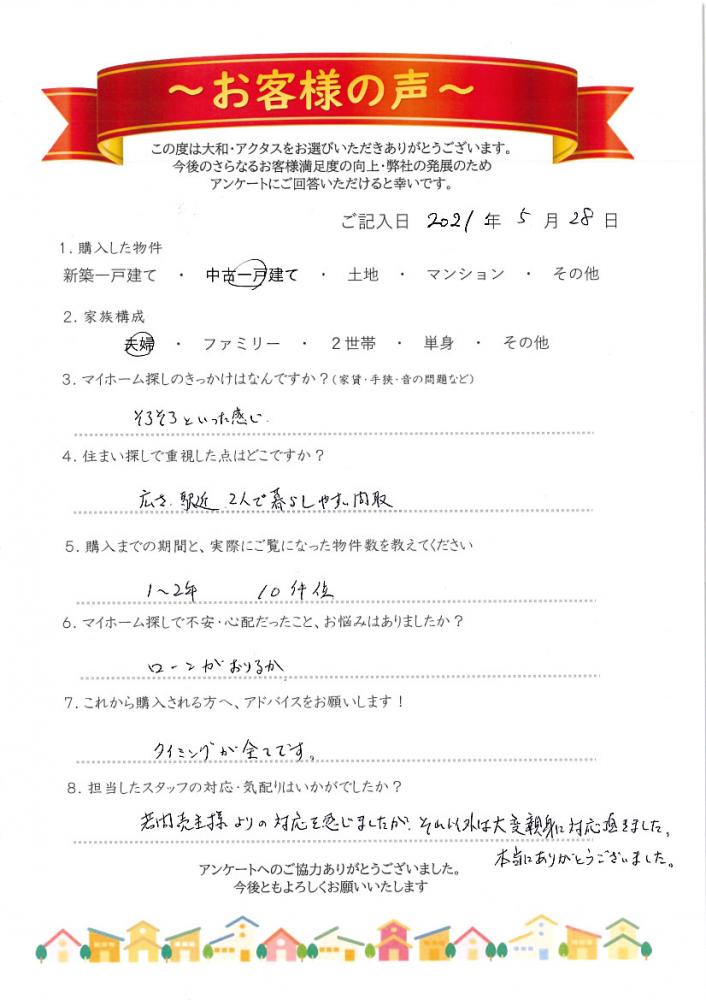 ～お客様の声～
この度は大和・アクタスをお選びいただきありがとうございます。
今後のさらなるお客様満足度の向上・弊社の発展のため
アンケートにご回答いただけると幸いです。
ご記入日 2021年 5月 28日
1. 購入した物件
新築一戸建て ・ 中古一戸建て ・ 土地 ・ マンション ・ その他
2. 家族構成
夫婦 ・ ファミリー ・ 2世帯 ・ 単身 ・ その他
3. マイホーム探しのきっかけはなんですか？(家賃・手狭・音の問題など)
そろそろといった感じ.
4. 住まい探しで重視した点はどこですか？
広さ、駅近、2人で暮らしやすい間取
5. 購入までの期間と、実際にご覧になった物件数を教えてください
1～2年 10件位
6. マイホーム探しで不安・心配だったこと、お悩みはありましたか？
ローンがおりるか
7. これから購入される方へ、アドバイスをお願いします！
タイミングが全てです。
8. 担当したスタッフの対応・気配りはいかがでしたか？
若干売主様よりの対応を感じましたが、それ以外は大変親身に対応頂きました。
本当にありがとうございました。
アンケートへのご協力ありがとうございました。
今後ともよろしくお願いいたします